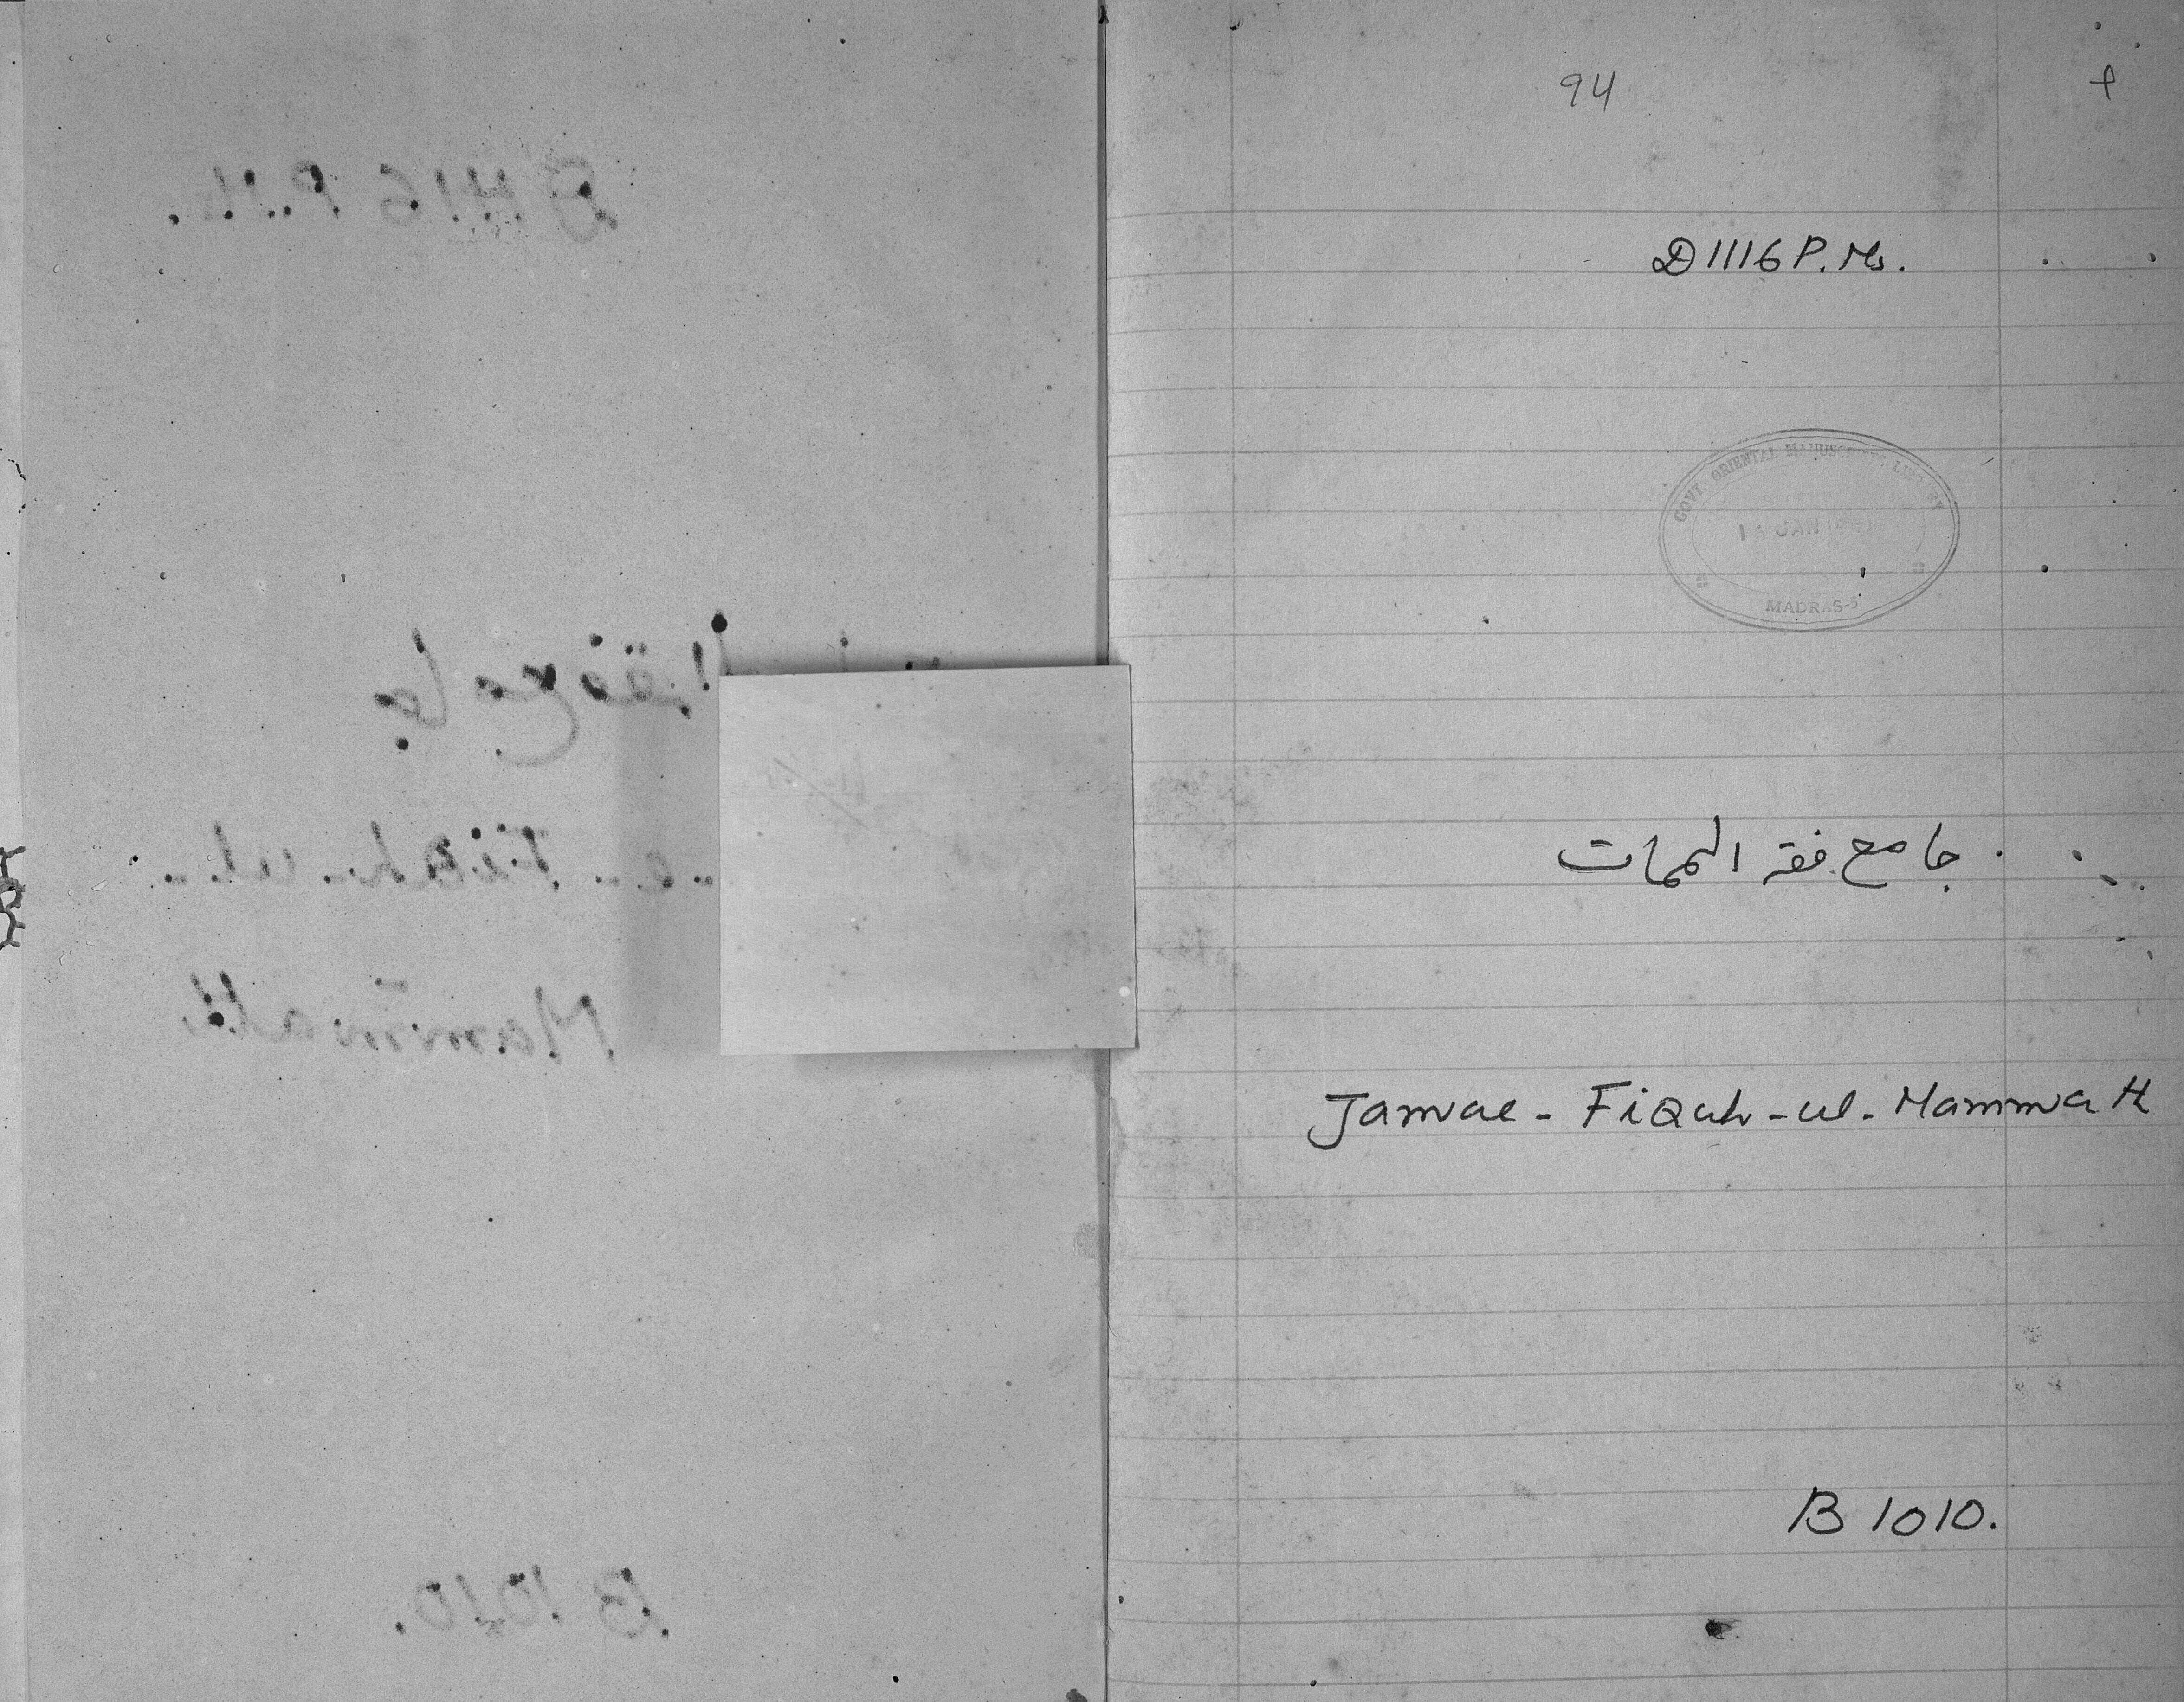 94
D 1116 P. Ms.
GOVT. ORIENTAL MANUSCRIPTS LIBRARY
JAN
MADRAS-5
جامع فقه الممات
Jamae - Fiquh - ul - Mammatt
B 1010.